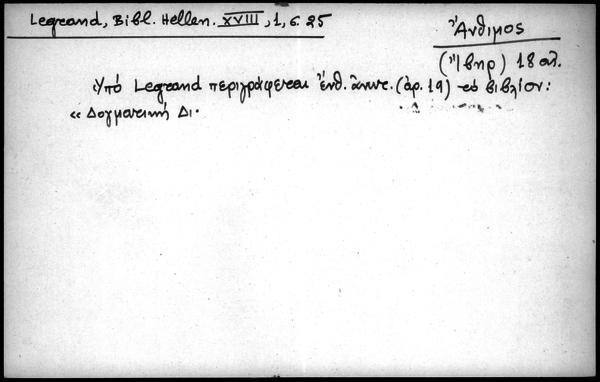 Legrand, Bibl. Hellen. XVIII, 1, σ. 25
Ἄνθιμος
(Ἴβηρ) 18 αἰ.
Ὑπό Legrand περιγράφεται ἔνθ. ἀνωτ. (ἀρ. 19) τό βιβλίον:
«Δογματική Δι.